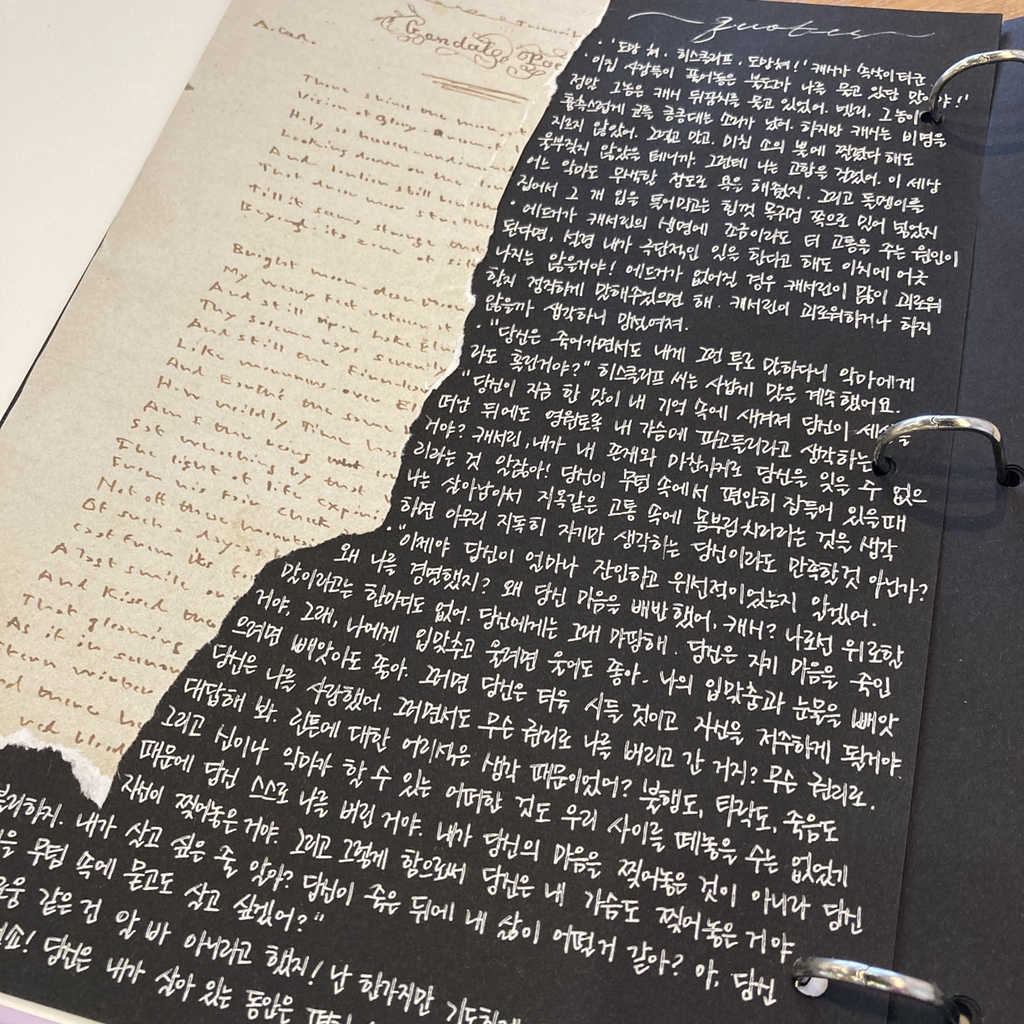 A.C.A.
Gondal Poe
There shines the moon, at
Vision of Glory - Dream of
Holy as heaven - undim
Looking down on the lon
And lonlier still beneath
That drear moor stretches
Till it seems strange that
Beyond its zone of silv
Bright moon - dear moon
My weary feet return at
And still upon Lake Eln
Thy solemn rays serenely
And still the Fern-leaves
Like mourners over El
And Earth's the same
How wildly Time has
Am I the being that
Sat watching by that
The light of life expiri
From his fair cheek
Not oft these mountains
Of such a day
Cast from its fo
A last smile on
And kissed the
That gleaming
As it in summer
Stern winter
nd there he
red blood
quotes
· '도망쳐, 히스클리프, 도망쳐!' 캐시가 속삭이더군
'이집 사람들이 풀어놓은 불도그가 나를 물고 있단 말이야!'
정말 그놈은 캐시 뒤꿈치를 물고 있었어. 넬리, 그놈이
흉측스럽게 코를 킁킁대는 소리가 났어. 하지만 캐시는 비명을
지르지 않았어. 그럼고 말고. 미친 소의 뿔에 찔렸다 해도
울부짖지 않았을 테니까. 그런데 나는 고함을 질렀어. 이 세상
어느 악마도 무색할 정도로 욕을 해줬지. 그리고 돌멩이를
집어서 그 개 입을 틀어막고는 힘껏 목구멍 쪽으로 밀어 넣었지
· 에드거가 캐서린의 생명에 조금이라도 더 고통을 주는 원인이
된다면, 설령 내가 극단적인 일을 한다고 해도 이치에 어긋
나지는 않을거야! 에드거가 없어질 경우 캐서린이 많이 괴로워
할지 정직하게 말해주었으면 해. 캐서린이 괴로워하거나 하지
않을까 생각하니 망설여져.
· "당신은 죽어가면서도 내게 그런 투로 말하다니 악마에게
라도 홀린거야?" 히스클리프 씨는 사납게 말을 계속했어요.
"당신이 지금 한 말이 내 기억 속에 새겨져 당신이 세상을
떠난 뒤에도 영원토록 내 가슴에 파고들리라고 생각하는
거야? 캐서린, 내가 내 존재와 마찬가지로 당신을 잊을 수 없으
리라는 것 알잖아! 당신이 무덤 속에서 편안히 잠들어 있을때
나는 살아남아서 지옥같은 고통 속에 몸부림치리라는 것을 생각
하면 아무리 지독히 자기만 생각하는 당신이라도 만족할것 아닌가?
· "이제야 당신이 얼마나 잔인하고 위선적이었는지 알겠어.
왜 나를 경멸했지? 왜 당신 마음을 배반했어, 캐시? 나로선 위로할
말이라고는 한마디도 없어. 당신에게는 그래 마땅해. 당신은 자기 마음을 죽인
거야. 그래, 나에게 입맞추고 울려면 울어도 좋아. 나의 입맞춤과 눈물을 빼앗
으려면 빼앗아도 좋아. 그러면 당신은 더욱 시들 것이고 자신을 저주하게 될거야.
당신은 나를 사랑했어. 그러면서도 무슨 권리로 나를 버리고 간 거지? 무슨 권리로.
대답해 봐. 린튼에 대한 어리석은 생각 때문이었어? 불행도, 타락도, 죽음도
그리고 신이나 악마가 할 수 있는 어떠한 것도 우리 사이를 떼놓을 수는 없었기
때문에 당신 스스로 나를 버린 거야. 내가 당신의 마음을 찢어놓은 것이 아니라 당신
자신이 찢어놓은 거야. 그리고 그렇게 함으로써 당신은 내 가슴도 찢어놓은 거야
불리하지. 내가 살고 싶은 줄 알아? 당신이 죽은 뒤에 내 삶이 어떨거 같아? 아, 당신
을 무덤 속에 묻고도 살고 싶겠어?"
로움 같은 건 알 바 아니라고 했지! 난 한가지만 기도하겠
쇼! 당신은 내가 살아 있는 동안은 편히